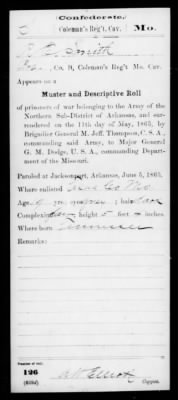 Confederate.
Coleman's Reg't, Cav. Mo.
Smith
Co. B, Coleman's Reg't Mo. Cav.
Appears on a
Muster and Descriptive Roll
of prisoners of war belonging to the Army of the
Northern Sub-District of Arkansas, and sur-
rendered on the 11th day of May, 1865, by
Brigadier General M. Jeff. Thompson, C. S. A.,
commanding said Army, to Major General
G. M. Dodge, U. S. A., commanding Depart-
ment of the Missouri.
Paroled at Jacksonport, Arkansas, June 5, 1865.
Where enlisted Co Mo
Age ; eyes ; hair dark
Complexion ; height 5 feet inches.
Where born Tennessee
Remarks:
Number of roll:
126
Copyist.